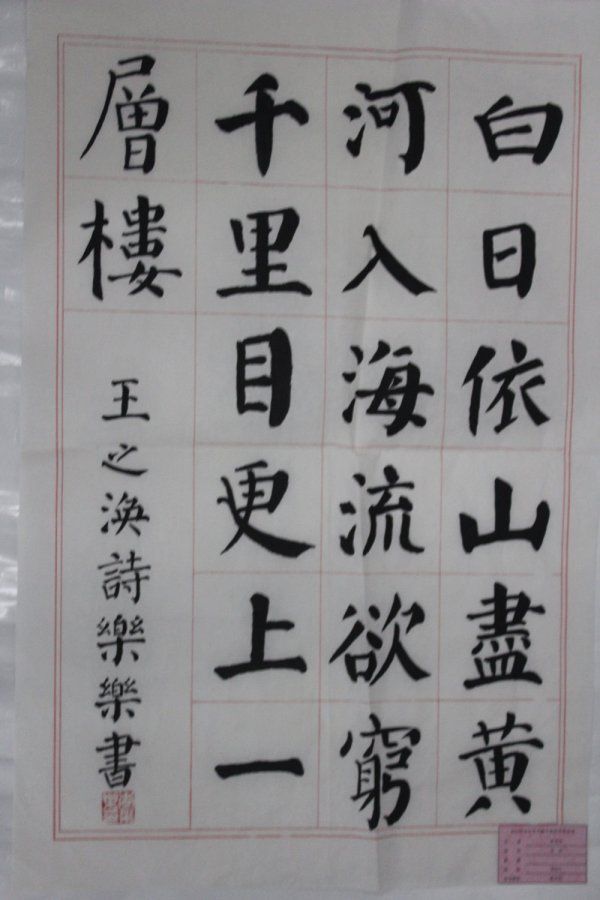 白日依山盡黄
河入海流欲窮
千里目更上一
層樓
王之渙詩樂樂書